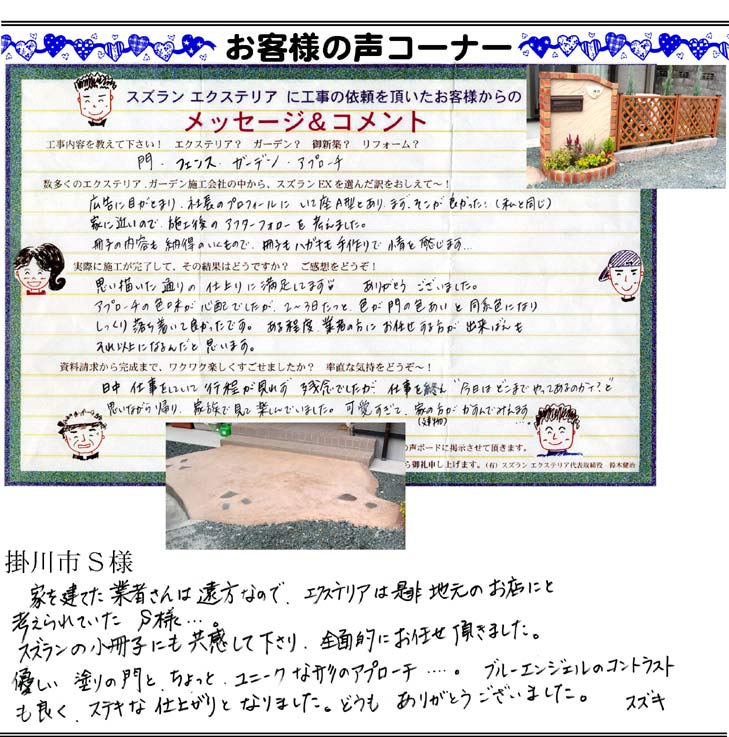 お客様の声コーナー
スズラン エクステリア に工事の依頼を頂いたお客様からの
メッセージ＆コメント
工事内容を教えて下さい！ エクステリア？ ガーデン？ 御新築？ リフォーム？
門・フェンス・ガーデン・アプローチ
数多くのエクステリア.ガーデン施工会社の中から、スズラン EX を選んだ訳をおしえて〜！
広告に目がとまり、社長のプロフィールに いて座A型とあり、まず、そこが良かった！（私と同じ）
家に近いので、施工後のアフターフォローを考えました。
冊子の内容も納得のいくもので、冊子もハガキも手作りで心情を感じます…
実際に施工が完了して、その結果はどうですか？ ご感想をどうぞ！
思い描いた通りの仕上りに満足してます ありがとうございました。
アプローチの色味が心配でしたが、2〜3日たつと、色が門の色あいと同系色になり
しっくり落ち着いて良かったです。 ある程度、業者の方にお任せする方が出来ばえも
それ以上になるんだと思います。
資料請求から完成まで、ワクワク楽しくすごせましたか？ 率直な気持をどうぞ〜！
日中 仕事をしていて行程が見れず 残念でしたが 仕事を終え "今日はどこまでやってあるのかナ？"と
思いながら帰り、家族で見て楽しんでいました。可愛すぎて、家の方がかすんでみえます
(建物) …。
の声ボードに掲示させて頂きます。
ら御礼申し上げます。(有) スズラン エクステリア代表取締役 鈴木健治
掛川市Ｓ様
家を建てた業者さんは遠方なので、エクステリアは是非 地元のお店にと
考えられていた S様…。
スズランの小冊子にも共感して下さり、全面的にお任せ頂きました。
優しい 塗りの門と、ちょっと、ユニークな形のアプローチ …。 ブルーエンジェルのコントラスト
も良く、ステキな仕上がりとなりました。どうも ありがとうございました。 スズキ